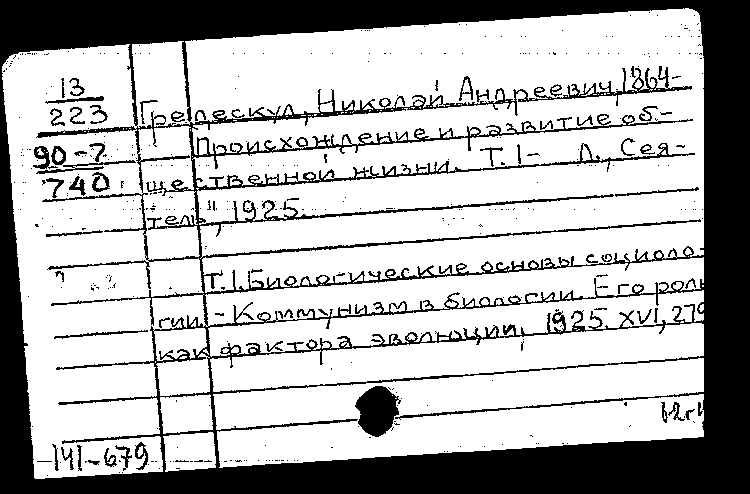 13
223
90-7
740
Гредескул, Николай Андреевич, 1864-
Происхождение и развитие об-
щественной жизни. Т. 1- Л., Сея-
тель", 1925.
Т. 1. Биологические основы социоло-
гии. - Коммунизм в биологии. Его роль
как фактора эволюции, 1925. XVI, 279
141-679